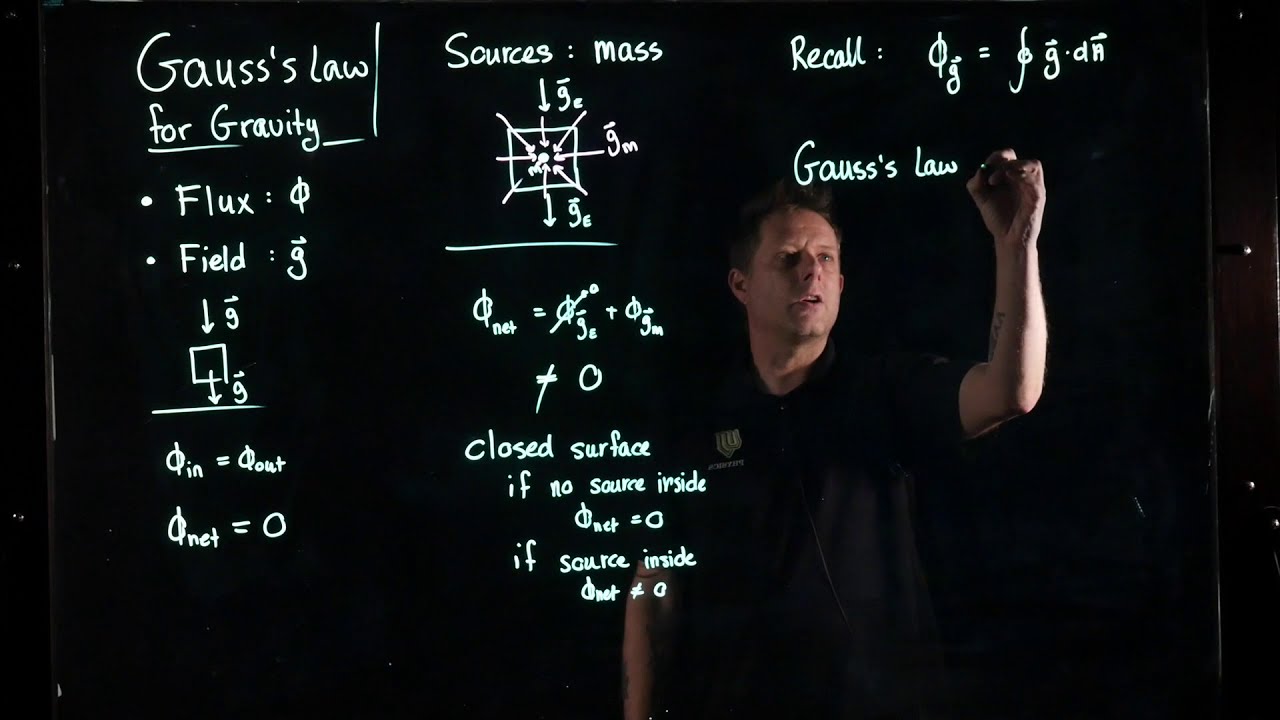 Gauss's Law
for Gravity
• Flux : ϕ
• Field : g⃗
g⃗
g⃗
ϕin = ϕout
ϕnet = 0
Sources : mass
g⃗E
g⃗m
m
g⃗E
ϕnet = ϕg⃗E 0 + ϕg⃗m
≠ 0
closed surface
if no source inside
ϕnet = 0
if source inside
ϕnet ≠ 0
Recall : ϕg⃗ = ∮ g⃗ · dA⃗
Gauss's Law
PHYSICS